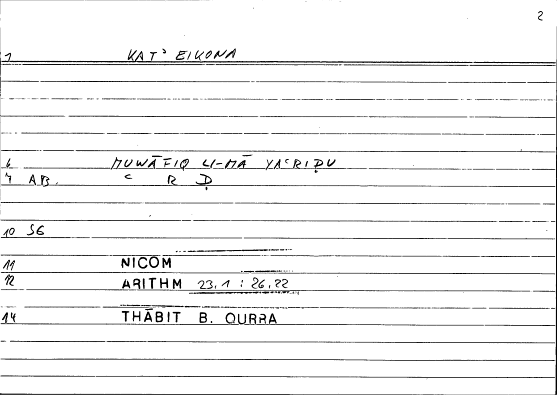 2
1 KAT' EIKONA
6 MUWĀFIQ LI-MĀ YAʿRIḌU
7 AB. ʿ R Ḍ
10 SG
11 NICOM
12 ARITHM 23,1 : 26,22
14 THĀBIT B. QURRA